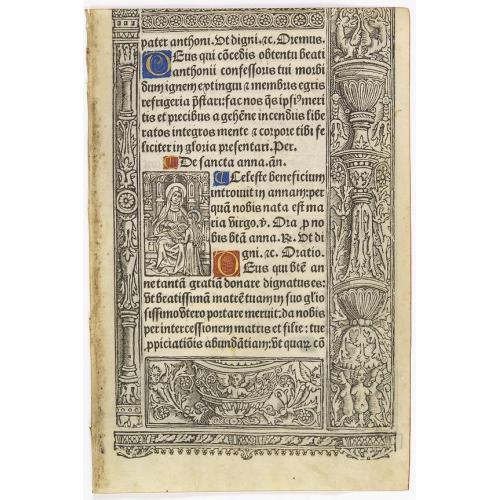 pater anthoni. Ut digni. ⁊c. Oremus.
Deus qui cōcedis obtentu beati
anthonii confessoris tui morbi
dum ignem extingui ⁊ membris egris
refrigeria p̄stari: fac nos q̄s ipsiꝰ meri
tis et precibus a gehēne incendiis libe
ratos integros mente ⁊ corpore tibi fe
liciter in gloria presentari. Per.
De sancta anna. añ.
Celeste beneficium
introiuit in annam: per
quā nobis nata est ma
ria virgo. v̄. Ora p̱ no
bis btā anna. ℞. Ut di
gni. ⁊c. Oratio.
Deus qui btē an
ne tantā gratiā donare dignatus es:
vt beatissimā matrē tuam in suo glio
sissimo vtero portare meruit: da nobis
per intercessionem matris et filie: tue
p̱piciatiōis abundātiam: vt quaꝝ cō